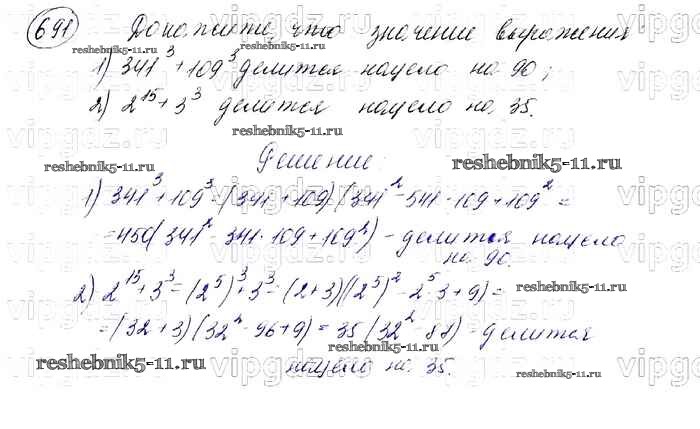 691 Докажите, что значение выражения
1) 341³ + 109³ делится нацело на 90;
2) 2¹⁵ + 3³ делится нацело на 35.
Решение:
1) 341³ + 109³ = (341 + 109)(341² - 541 · 109 + 109² =
= 450(341² - 341 · 109 + 109²) - делится нацело
на 90.
2) 2¹⁵ + 3³ = (2⁵)³ + 3³ = (2 + 3)((2⁵)² - 2⁵ · 3 + 9) =
= (32 + 3)(32² - 96 + 9) = 35(32² - 87) - делится
нацело на 35.
reshebnik5-11.ru
reshebnik5-11.ru
reshebnik5-11.ru
reshebnik5-11.ru
reshebnik5-11.ru
reshebnik5-11.ru
reshebnik5-11.ru
reshebnik5-11.ru
reshebnik5-11.ru
reshebnik5-11.ru
vipgdz.ru